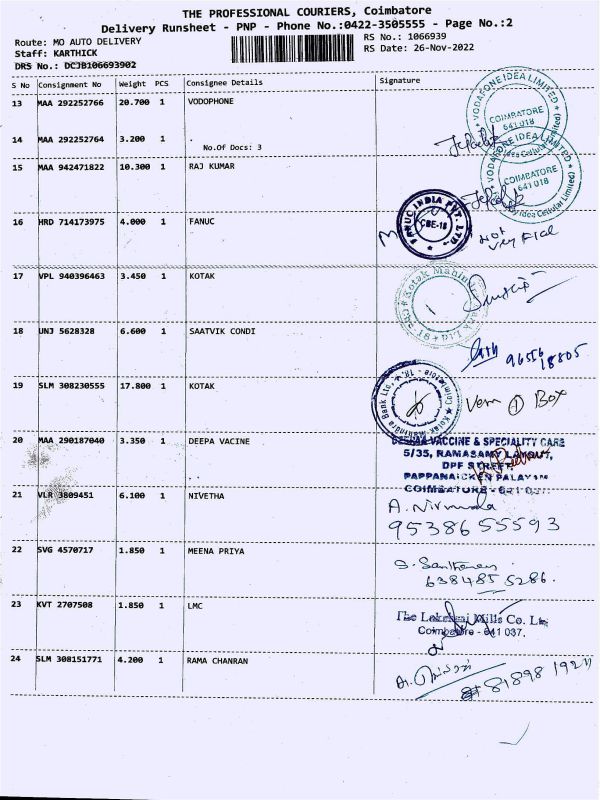 THE PROFESSIONAL COURIERS, Coimbatore
Delivery Runsheet - PNP - Phone No.:0422-3505555 - Page No.:2
Route: MO AUTO DELIVERY
RS No.: 1066939
Staff: KARTHICK
RS Date: 26-Nov-2022
DRS No.: DCJB106693902
S No Consignment No Weight PCS Consignee Details Signature
13 MAA 292252766 20.700 1 VODOPHONE
VODAFONE IDEA LIMITED
COIMBATORE
641 018
14 MAA 292252764 3.200 1 .
No.Of Docs: 3
15 MAA 942471822 10.300 1 RAJ KUMAR
COIMBATORE
641 018
16 HRD 714173975 4.000 1 FANUC
FANUC INDIA PVT. LTD.
CBE-18
Not
17 VPL 940396463 3.450 1 KOTAK
18 UNJ 5628328 6.600 1 SAATVIK CONDI
19 SLM 308230555 17.800 1 KOTAK
Box
20 MAA 290187040 3.350 1 DEEPA VACINE
VACCINE & SPECIALITY CARE
5/35, RAMASAMY LAYOUT,
DPF STREET,
21 VLR 3809451 6.100 1 NIVETHA
A. Nirmala
95386 55593
22 SVG 4570717 1.850 1 MEENA PRIYA
638485 5286.
23 KVT 2707508 1.850 1 LMC
The Lakshmi Mills Co. Ltd
Coimbatore - 641 037.
24 SLM 308151771 4.200 1 RAMA CHANRAN